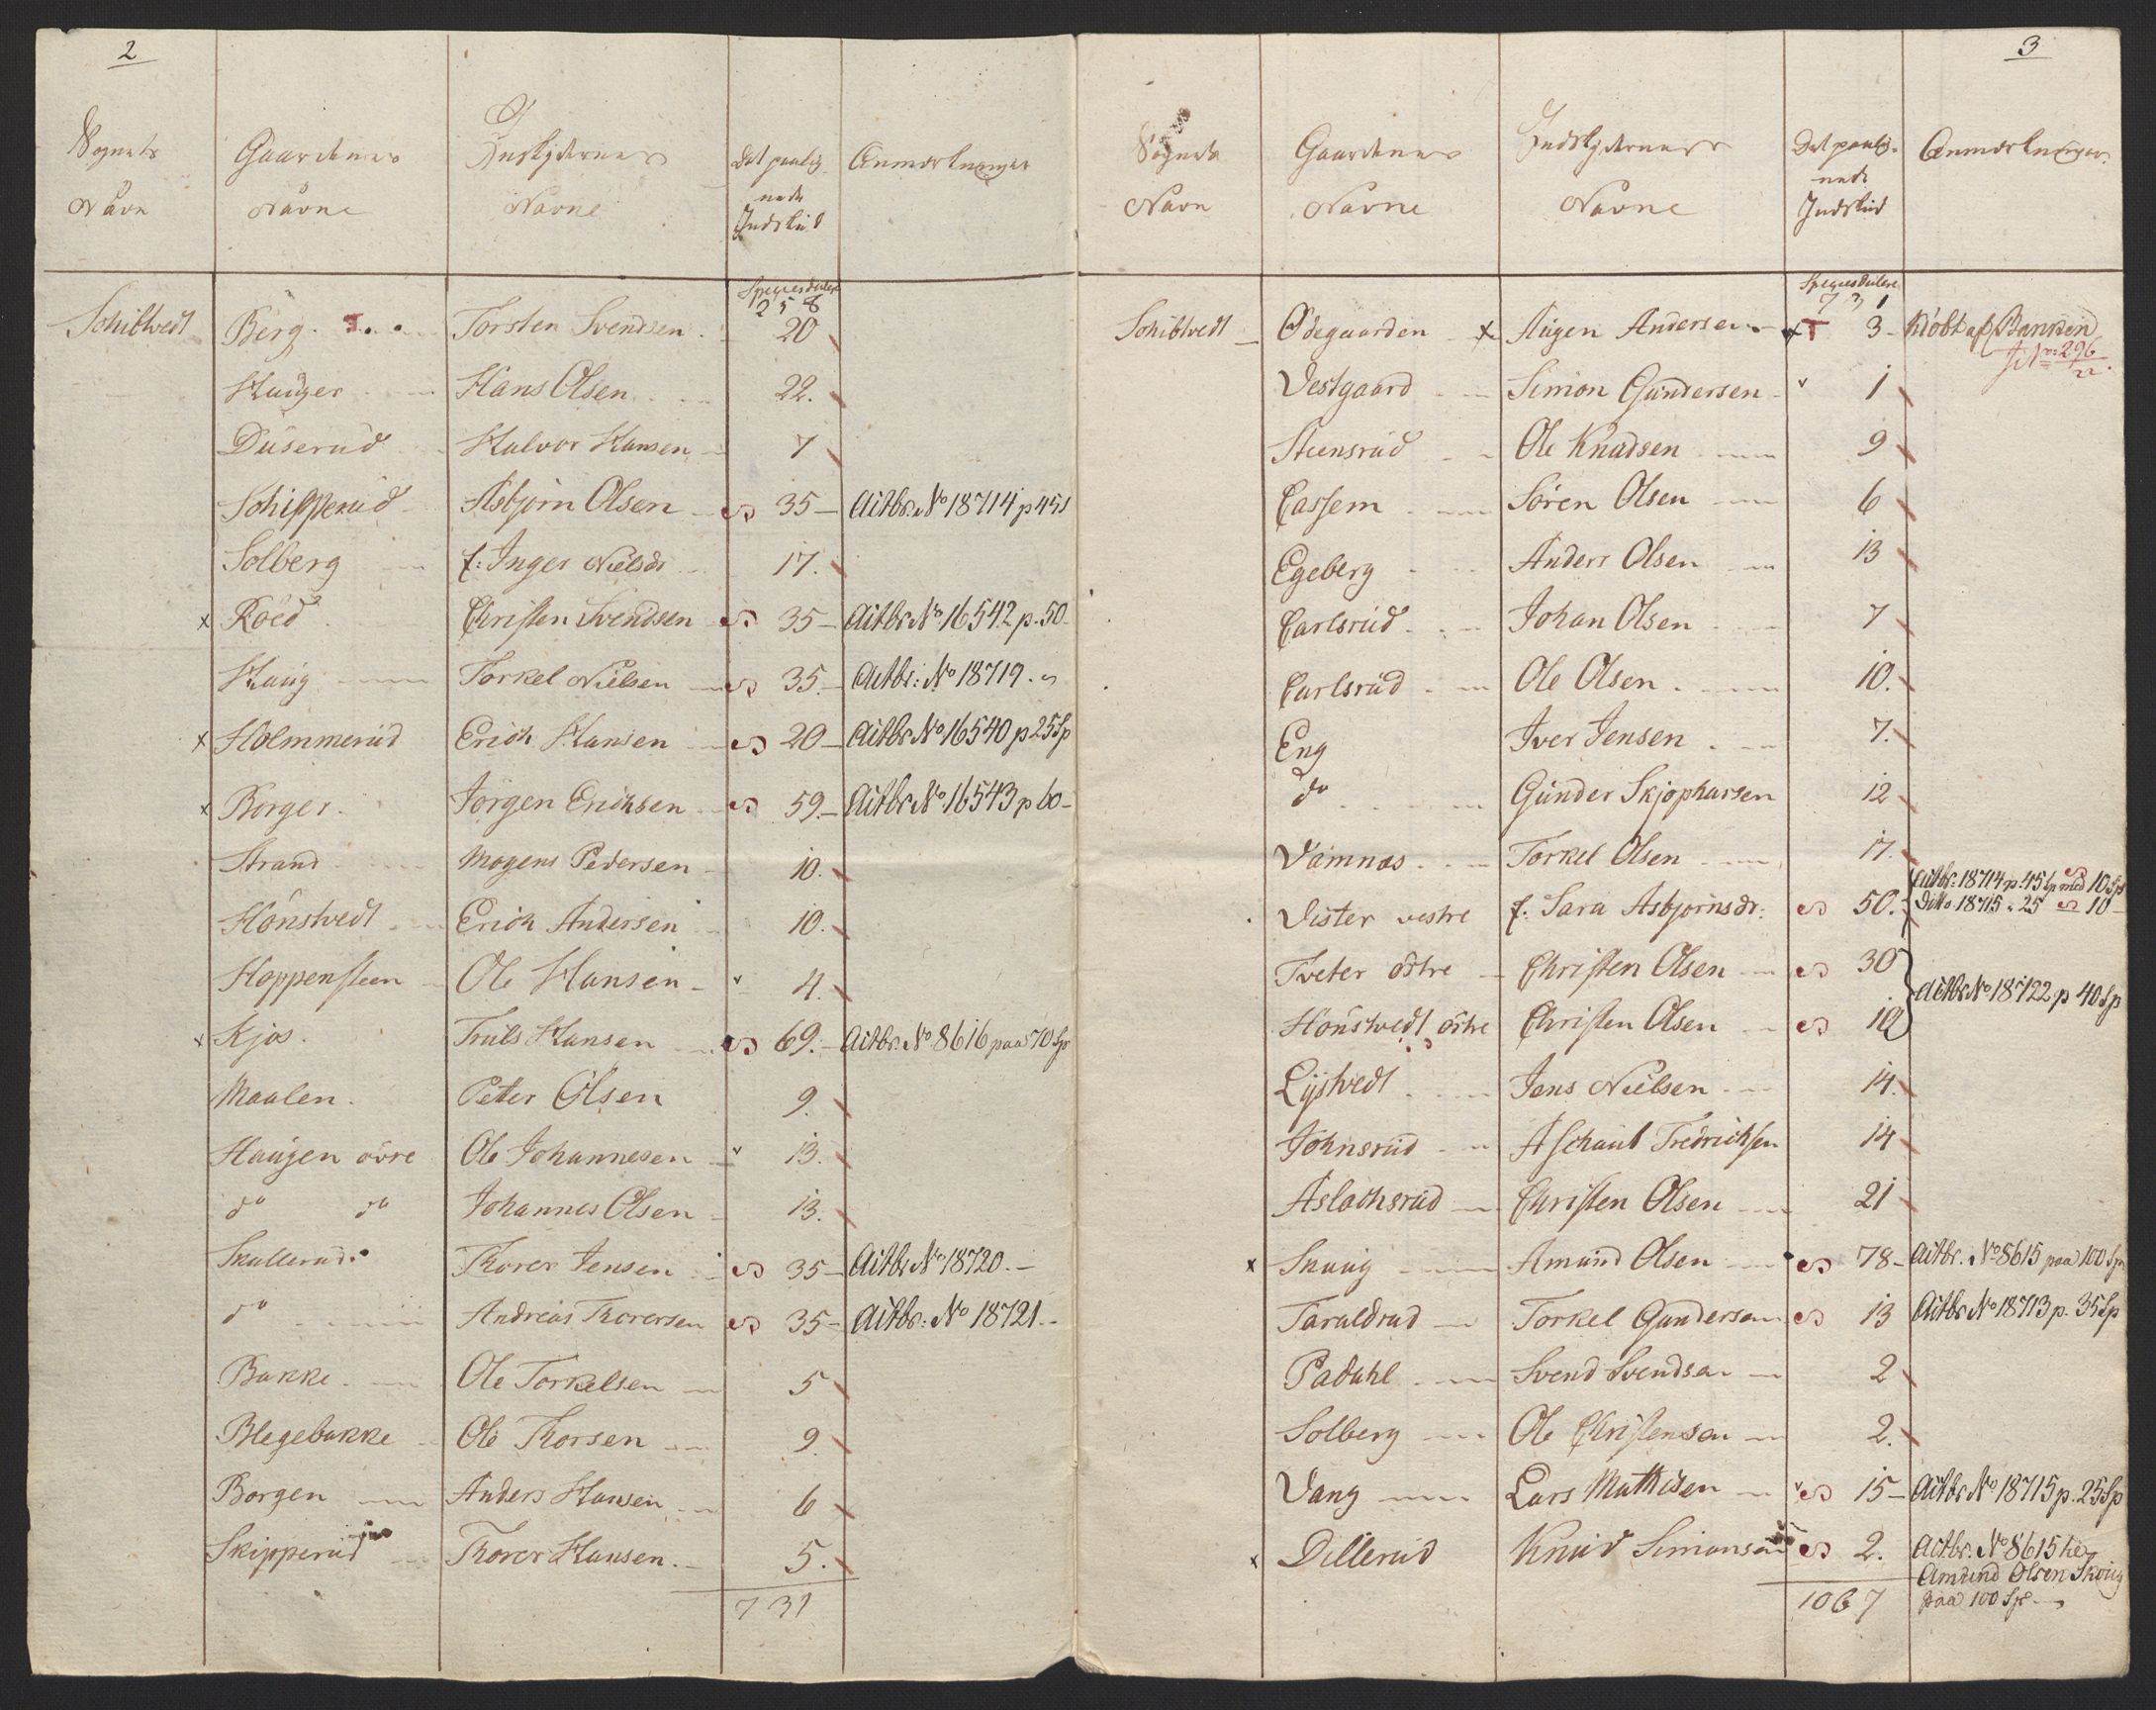 2
Sognets Navn | Gaardenes Navne | Indskydernes Navne | Det paalignede Indskud | Anmærkninger
Speciesdaler
258
Schibtvedt | Berg | Torsten Svendsen | 20
Hauger | Hans Olsen | 22.
Düserud | Halvor Hansen | 7
Schipperud | Asbjörn Olsen | 35 | Actbr. No 18714 p 45s
Solberg | f: Inger Nielsdr | 17.
x Röed | Christen Svendsen | 35 | Actbr No 16542 p. 50
Haug | Torkel Nielsen | 35. | Actbr: No 18719.
x Holmmerud | Erich Hansen | 20 | Actbr No 16540 p 25 Sp
x Borger. | Jörgen Erichsen | 59. | Actbr No 16543 p 60
Strand | Mogens Pedersen | 10.
Hönstvedt | Erich Andersen | 10.
Hoppensteen | Ole Hansen | v 4.
x Kjos. | Truls Hansen | 69. | Actbr. No 8616 paa 70 Sp
Maalen. | Peter Olsen | 9.
Haugen övre | Ole Johannesen | v 13.
do do | Johannes Olsen | 13.
Skullerud | Thorer Jensen | 35 | Actbr No 18720.
do | Andreas Thorersen | 35 | Actbr: No 18721.
Bakke | Ole Torkelsen | 5
Blegebakke | Ole Thorsen | 9.
Borgen | Anders Hansen | 6
Skipperud | Thorer Hansen. | 5.
731
3
Sognets Navn | Gaardenes Navne | Indskydernes Navne | Det paalignede Indskud | Anmærkninger
Speciesdaler
731
Schibtvedt | Ödegaarden | x Aagen Andersen | x T 3 | Kiöbt af Banken
No 296
Vestgaard | Simon Gundersen | v 1
Steensrud | Ole Knudsen | 9
Cassem | Sören Olsen | 6
Egeberg | Anders Olsen | 13
Carlsrud | Johan Olsen | 7
Carlsrud | Ole Olsen. | 10.
Eng | Iver Jensen | 7.
do | Gunder Skjopharsen | 12
Vamnas | Torkel Olsen | 17.
Vister vestre | f: Sara Asbjornsdr: | 50. | Actbr: 18714 p. 45 Sp med 10 Sp
Ditto 18715 . 25 10
Tveter östre | Christen Olsen | 30
Hönstvedt östre | Christen Olsen | 10 | Actbr No 18722 p 40 Sp
Lystvedt | Jens Nielsen | 14.
Johnsrud | Aschaut Fredrichsen | 14
Aslachsrud | Christen Olsen | 21
x Skaug | Amund Olsen | 78 | Actbr. No 8615 paa 100 Sp
Taraldrud | Torkel Gundersen | 13 | Actbr No 18713 p. 35 Sp
Padahl | Svend Svendsen | 2
Solberg | Ole Christensen | 2.
Vang | Lars Mathisen | v 15 | Actbr No 18715 p. 25 Sp
x Dillerud | Knud Simonsen | 2. | Actbr. No 8615
Amund Olsen Skoug
paa 100 Sp
1067